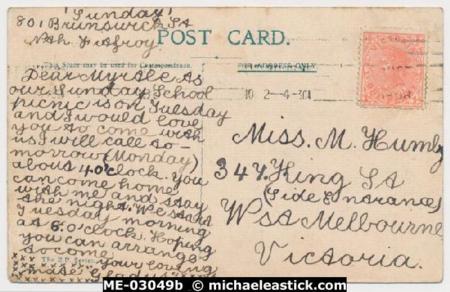 'Sunday'
801 Brunswick St
Nth Fitzroy
POST CARD.
This Space may be used for Correspondence.
Dear Myrtle As
our Sunday School
picnic is on Tuesday
and I would love
you to come with
us I will call to-
morrow (Monday)
about 4 o'clock. You
can come home
with me and stay
the night. We start
Tuesday morning
at 8 o'clock. Hoping
you can arrange
to come your loving
mate Gladys
XXXX
ADDRESS ONLY
VICTORIA
Miss. M. Humby
347. King St
(Side Entrance)
West Melbourne
Victoria.
ME-03049b © michaeleastick.com